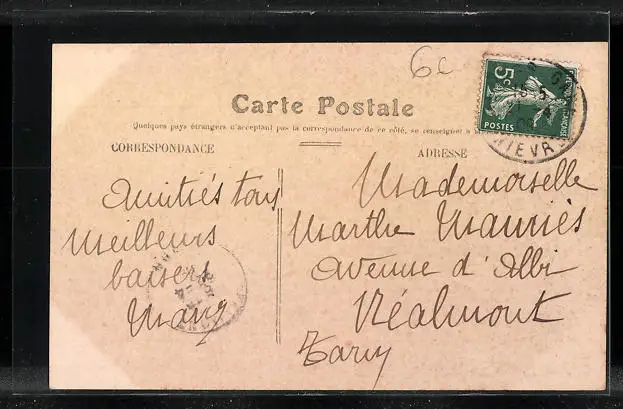 6c
Carte Postale
Quelques pays étrangers n'acceptant pas la correspondance de ce côté, se renseigner à
CORRESPONDANCE
ADRESSE
5c
POSTES
NIEVR
Amitiés tous
Meilleurs
baisers
Mademoiselle
Marthe Mauriès
Avenue d'Albi
Réalmont
Tarn